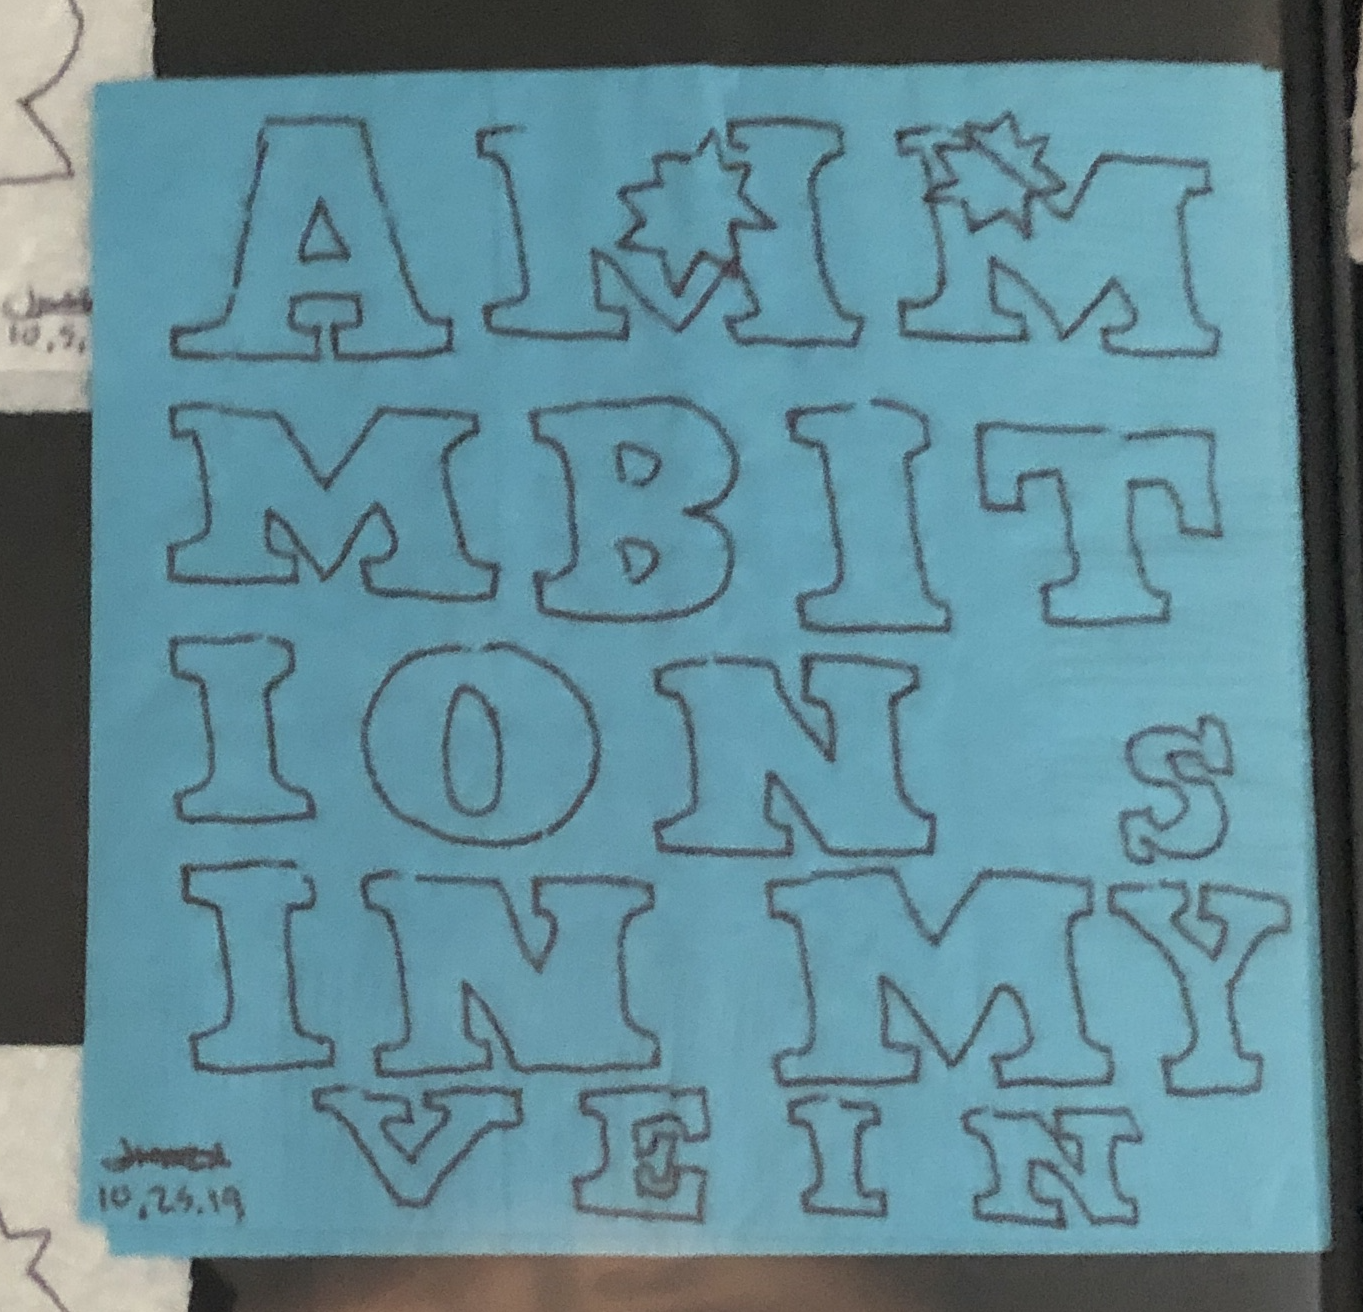 AMM
MBIT
ION S
IN MY
VEIN
10.25.19